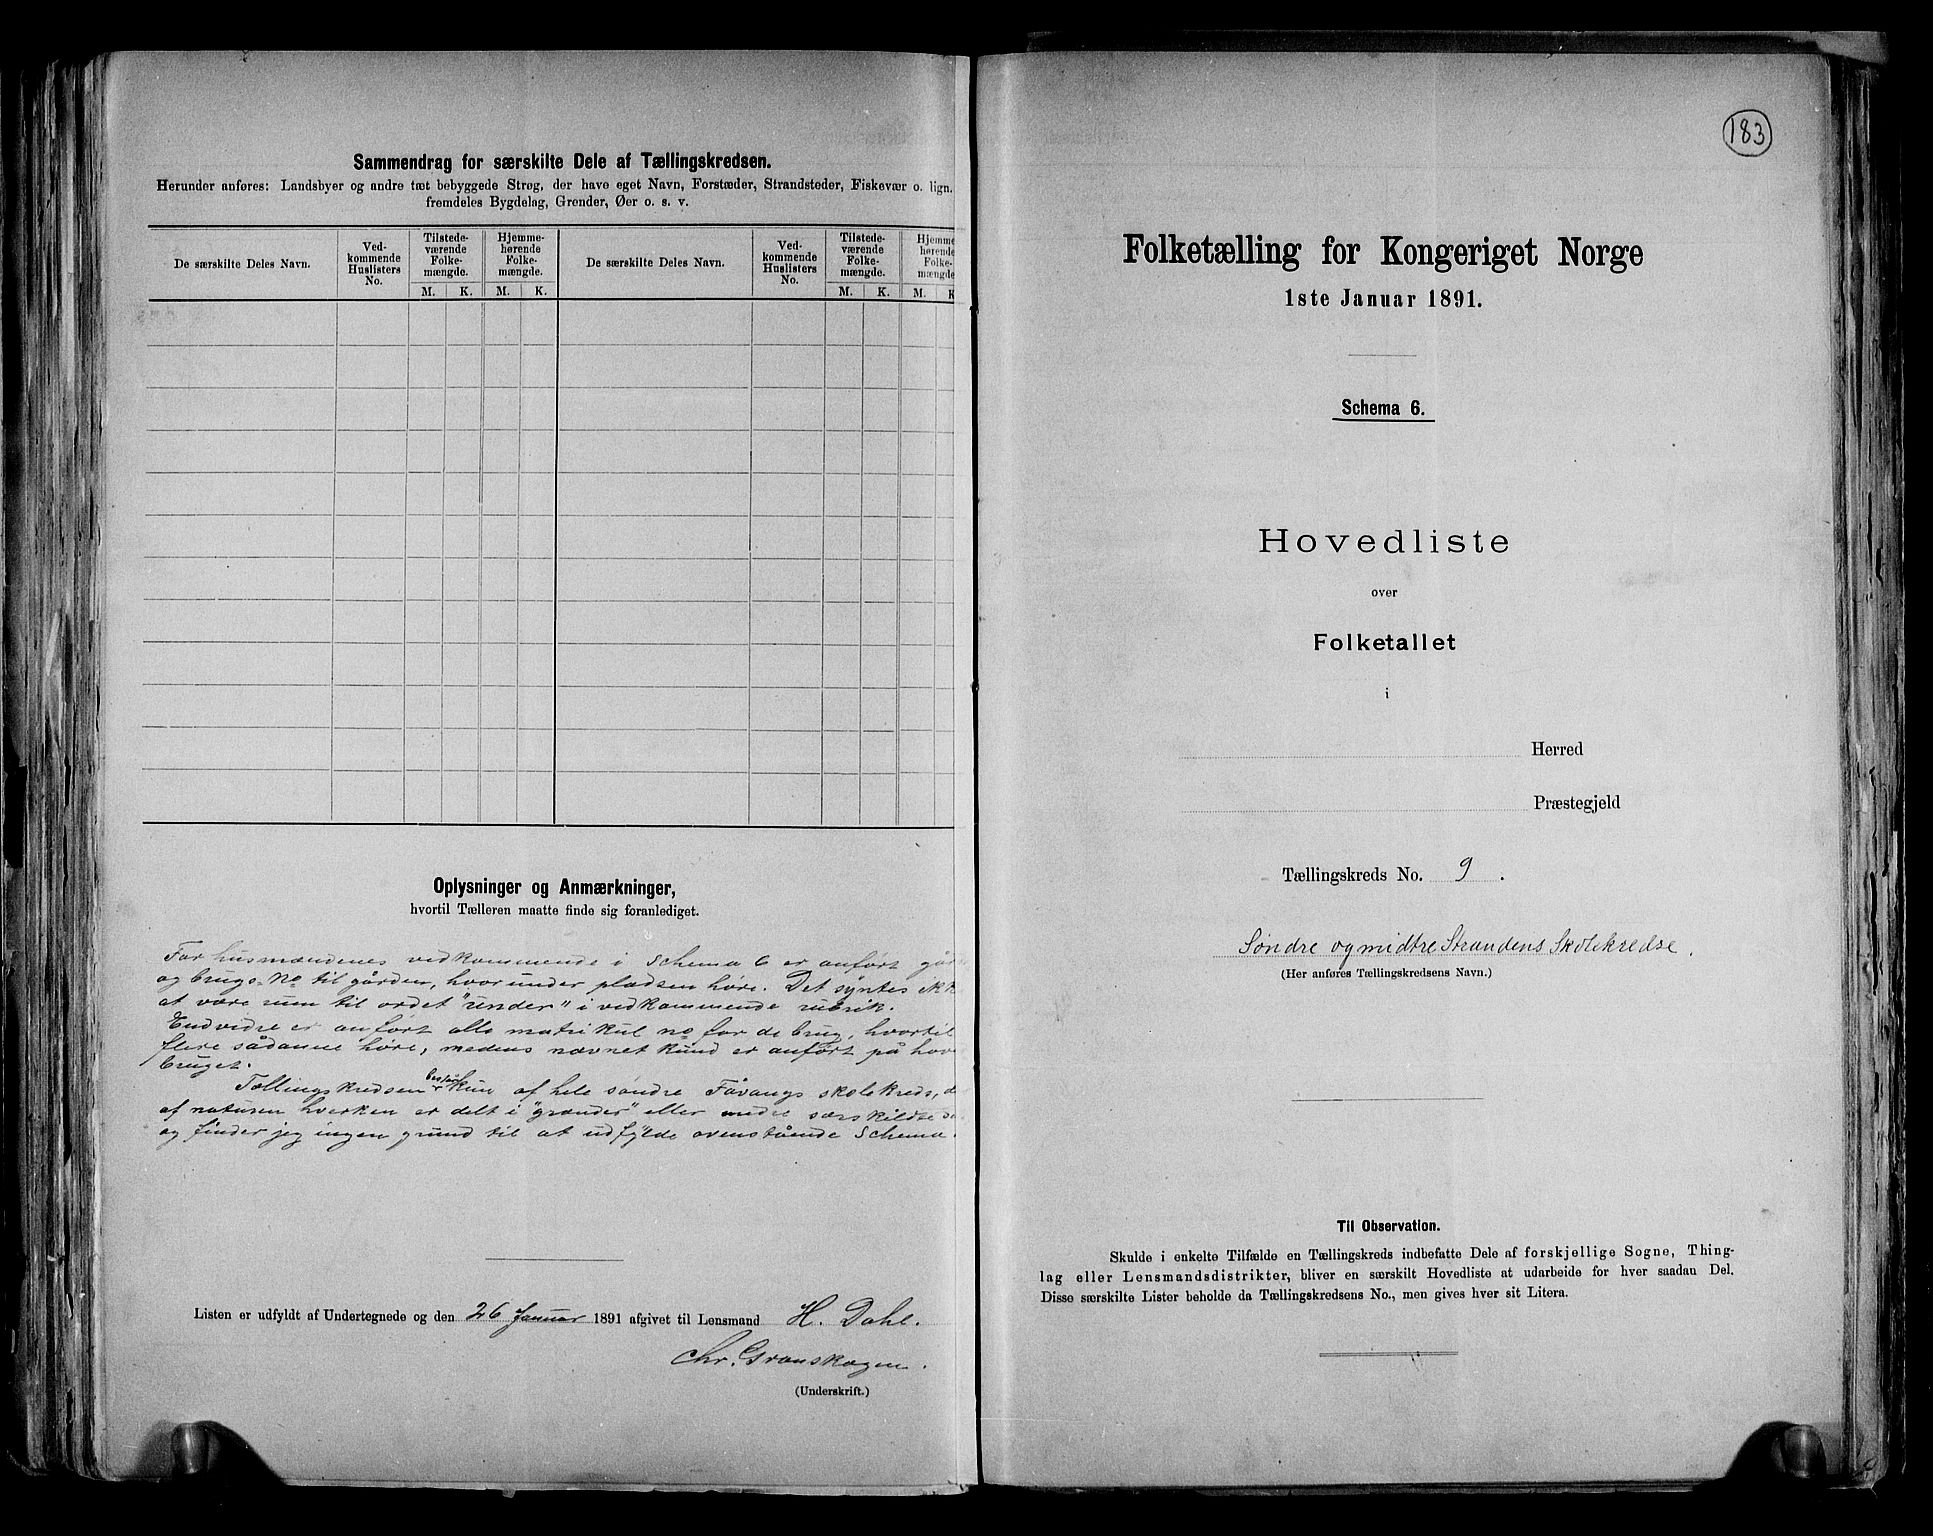 Sammendrag for særskilte Dele af Tællingskredsen.
Herunder anføres: Landsbyer og andre tæt bebyggede Strøg, der have eget Navn, Forstæder, Strandsteder, Fiskevær o. lign.
fremdeles Bygdelag, Grender, Øer o. s. v.
De særskilte Deles Navn.
Ved-
kommende
Huslisters
No.
Tilstede-
værende
Folke-
mængde.
M. K.
Hjemme-
hørende
Folke-
mængde.
M. K.
De særskilte Deles Navn.
Ved-
kommende
Huslisters
No.
Tilstede-
værende
Folke-
mængde.
M. K.
Hjemme
hørende
Folke-
mængde
M. K
Oplysninger og Anmærkninger,
hvortil Tælleren maatte finde sig foranlediget.
For husmændenes vedkommende i Schema 6 er anført går
og brugs-No til gården, hvorunder pladsen höre. Det syntes ikk
at være rum til ordet "under" i vedkommende rubrik.
Endvidre er anført alle matrikul no for de brug, hvortil
flere sådanne höre, medens navnet kund er anført på hov
bruget.
Tællingskredsen består kun af hele søndre Fåvangs skolekreds, d
af naturen hverken er delt i "grænder" eller andre særskildte de
og finder jeg ingen grund til at udfylde ovenstående Schema.
Listen er udfyldt af Undertegnede og den 26 Januar 1891 afgivet til Lensmand H. Dahl.
Chr. Granskogen.
(Underskrift.)
183
Folketælling for Kongeriget Norge
1ste Januar 1891.
Schema 6.
Hovedliste
over
Folketallet
i
Herred
Præstegjeld
Tællingskreds No. 9.
Søndre og midtre Strandens Skolekredse.
(Her anføres Tællingskredsens Navn.)
Til Observation.
Skulde i enkelte Tilfælde en Tællingskreds indbefatte Dele af forskjellige Sogne, Thing-
lag eller Lensmandsdistrikter, bliver en særskilt Hovedliste at udarbeide for hver saadan Del.
Disse særskilte Lister beholde da Tællingskredsens No., men gives hver sit Litera.